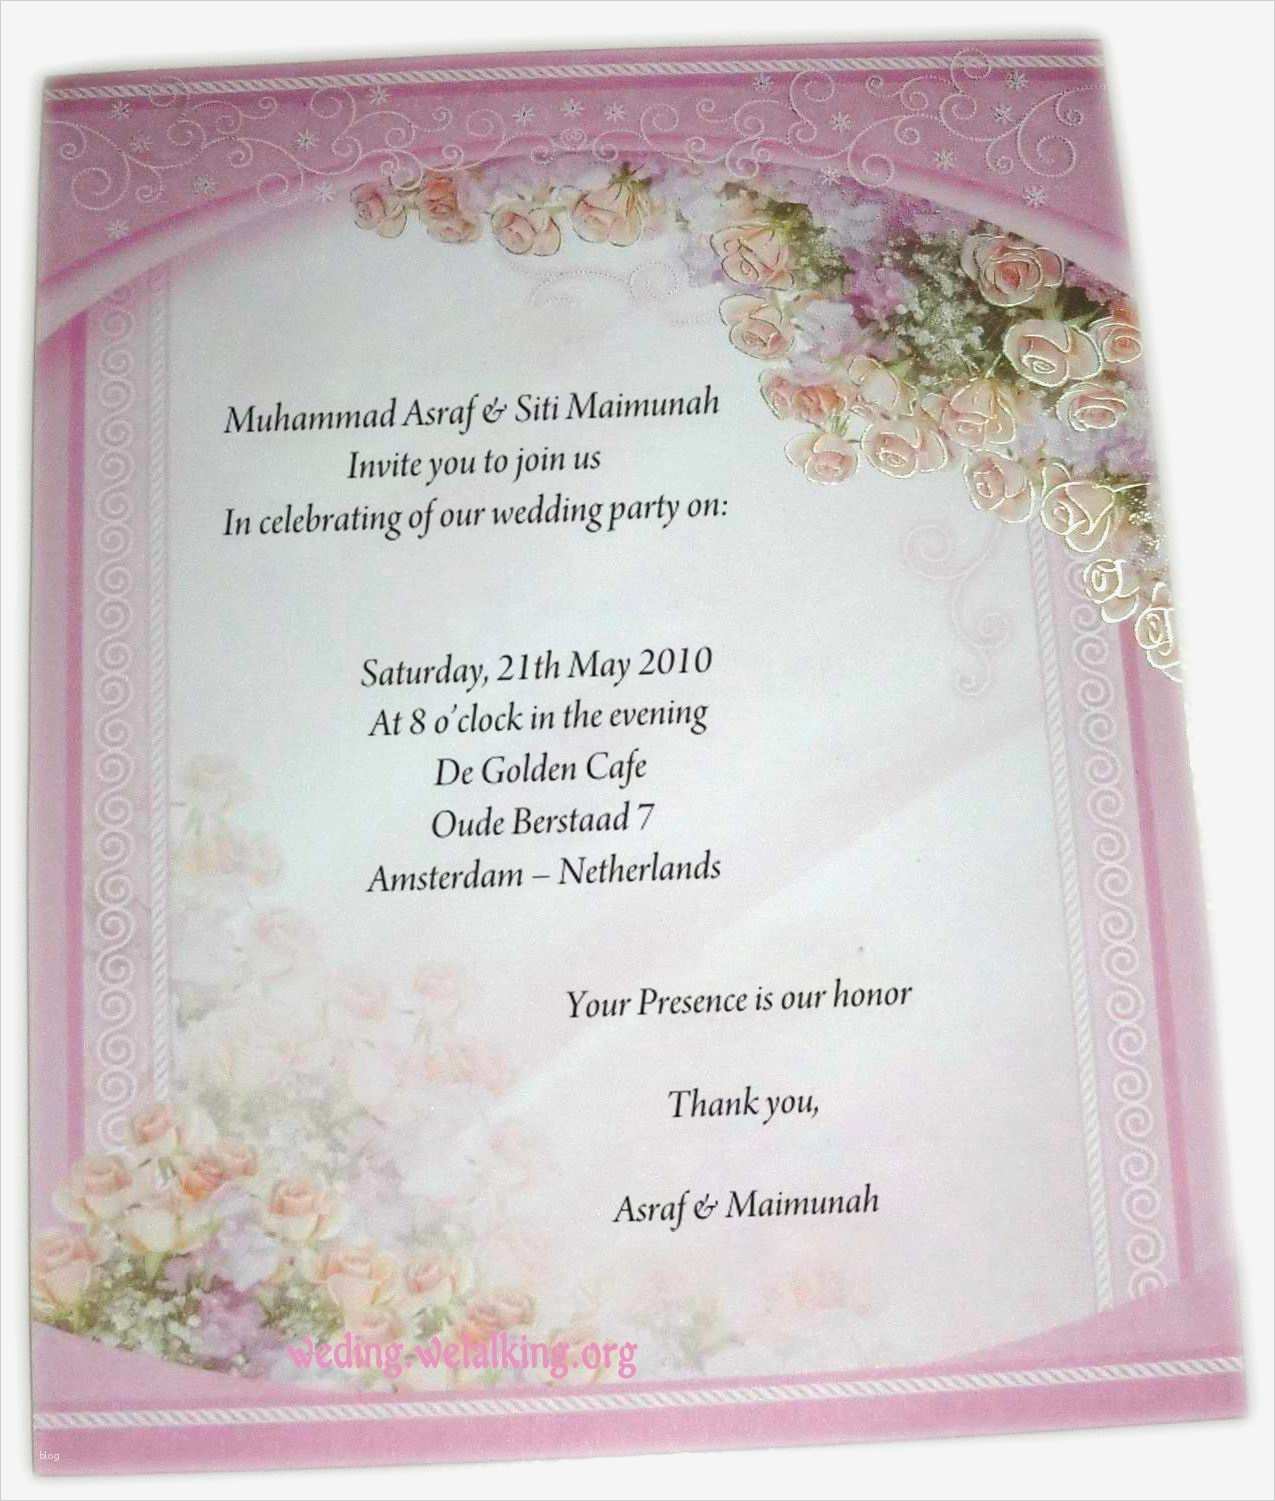 Muhammad Asraf & Siti Maimunah
Invite you to join us
In celebrating of our wedding party on:
Saturday, 21th May 2010
At 8 o'clock in the evening
De Golden Cafe
Oude Berstaad 7
Amsterdam – Netherlands
Your Presence is our honor
Thank you,
Asraf & Maimunah
weding.wetalking.org
blog